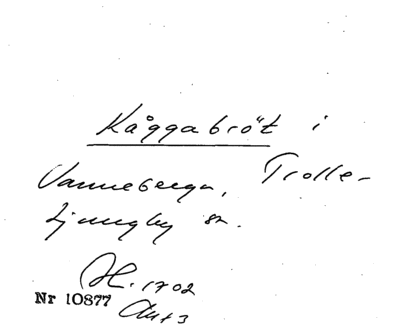 Kåggabröt i
Vanneberga, Trolle-
Ljungby sn.
H. 1702
Nr 10877